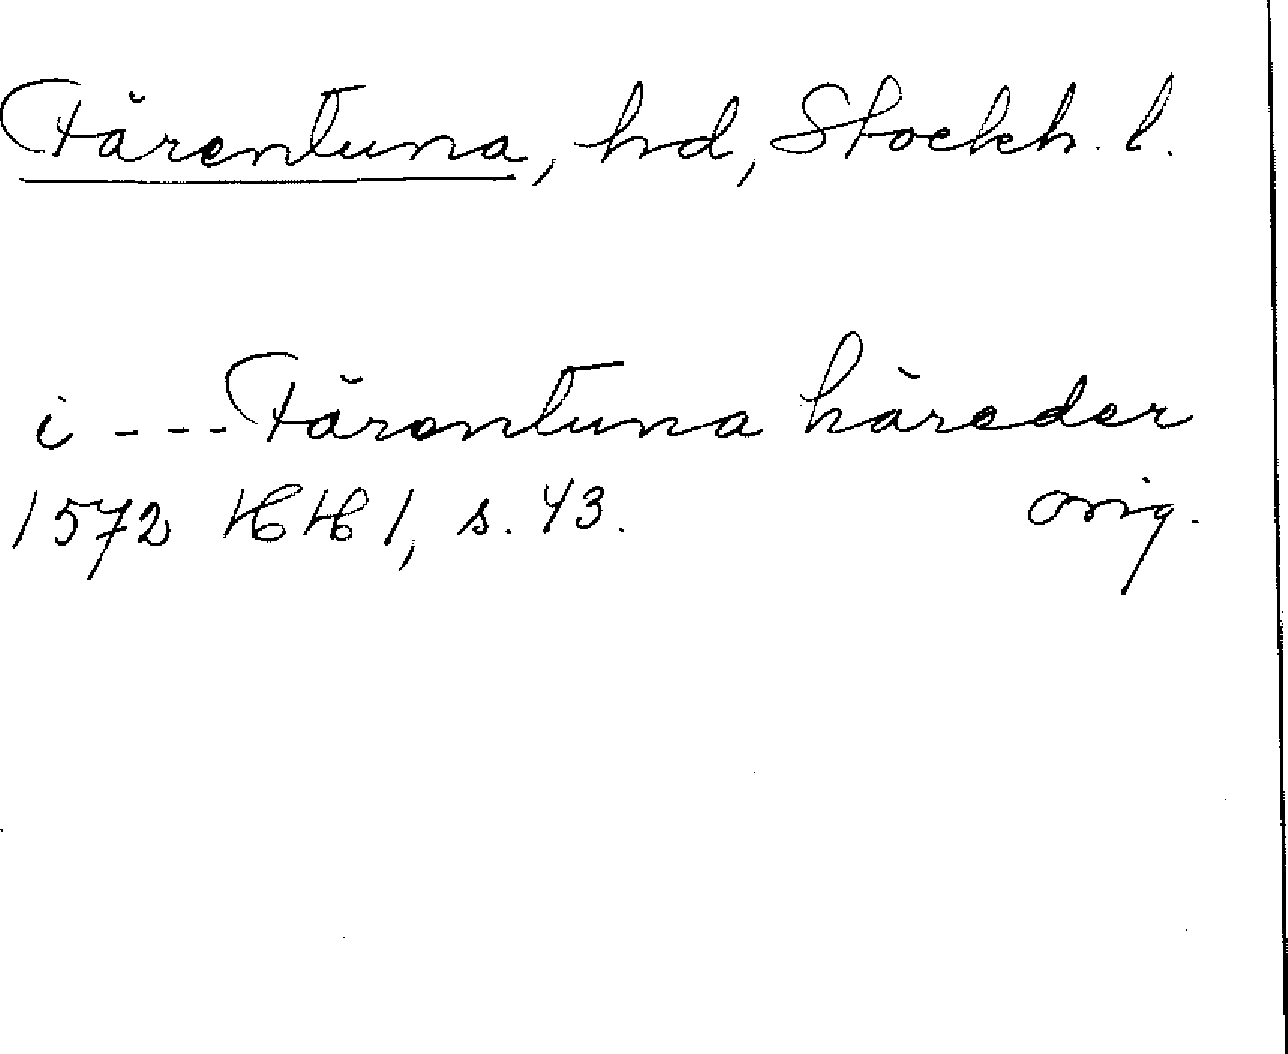 Färentuna, hd, Stockh. l.
i --- Färentuna häreder
1572 HH 1, s. 43. orig.